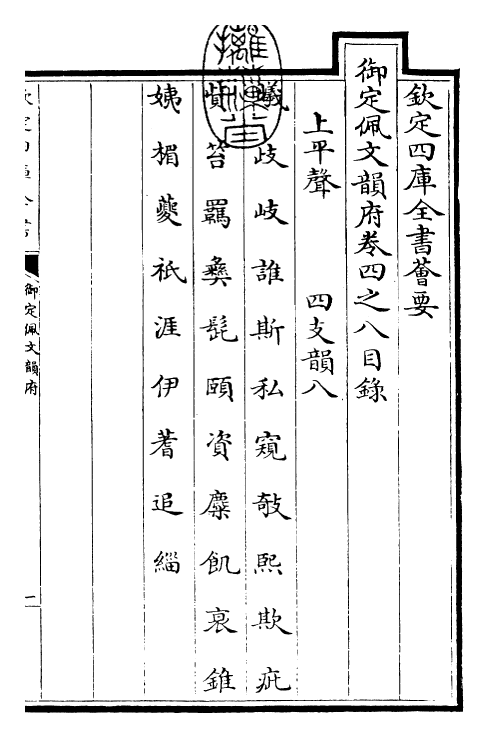 欽定四庫全書薈要
御定佩文韻府卷四之八目錄
上平聲 四支韻八
羲歧岐誰斯私窺攲熙欺疵
貲笞羈彝髭頤資糜飢衰錐
姨楣夔祇涯伊蓍追緇
欽定四庫全書
御定佩文韻府
一